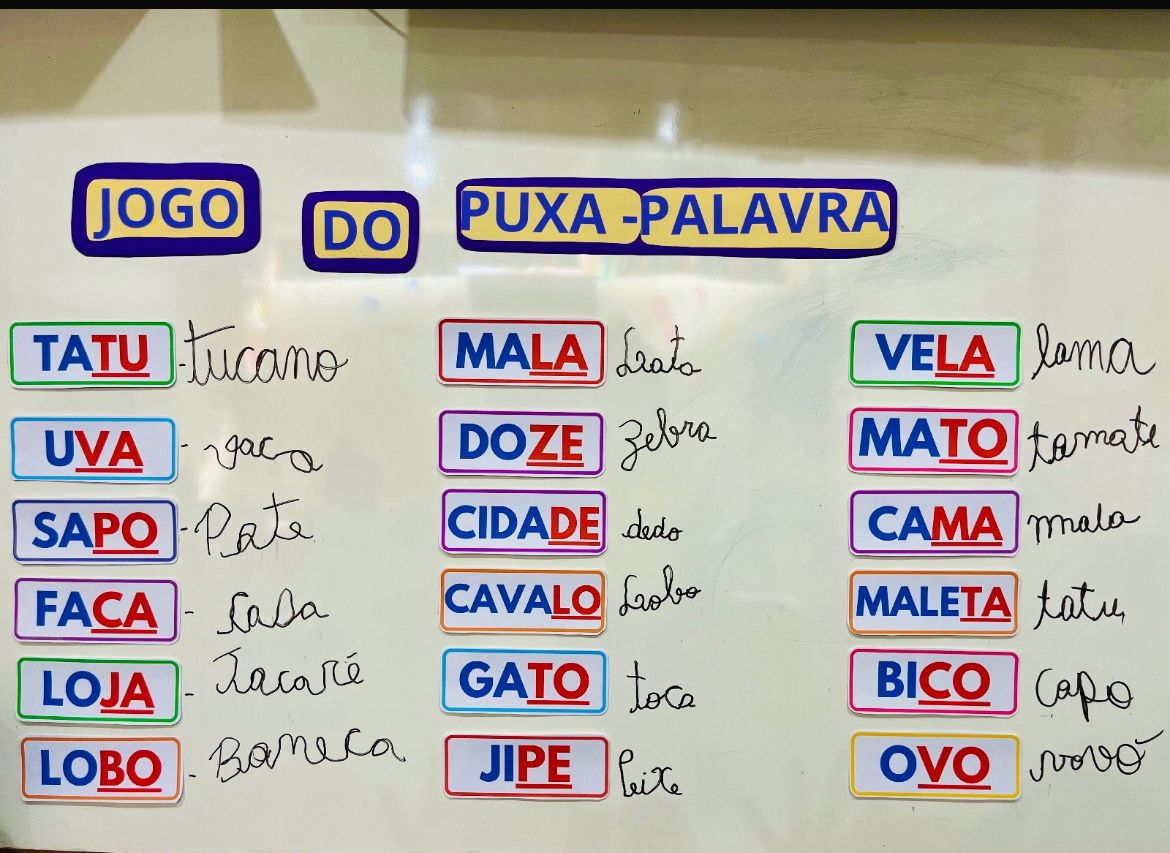 JOGO DO PUXA -PALAVRA
TATU - tucano
UVA - vaca
SAPO - Pate
FACA - casa
LOJA - Jacaré
LOBO - Boneca
MALA Lata
DOZE zebra
CIDADE dedo
CAVALO Lobo
GATO toca
JIPE peixe
VELA lama
MATO tamate
CAMA mala
MALETA tatu
BICO copo
OVO vovó